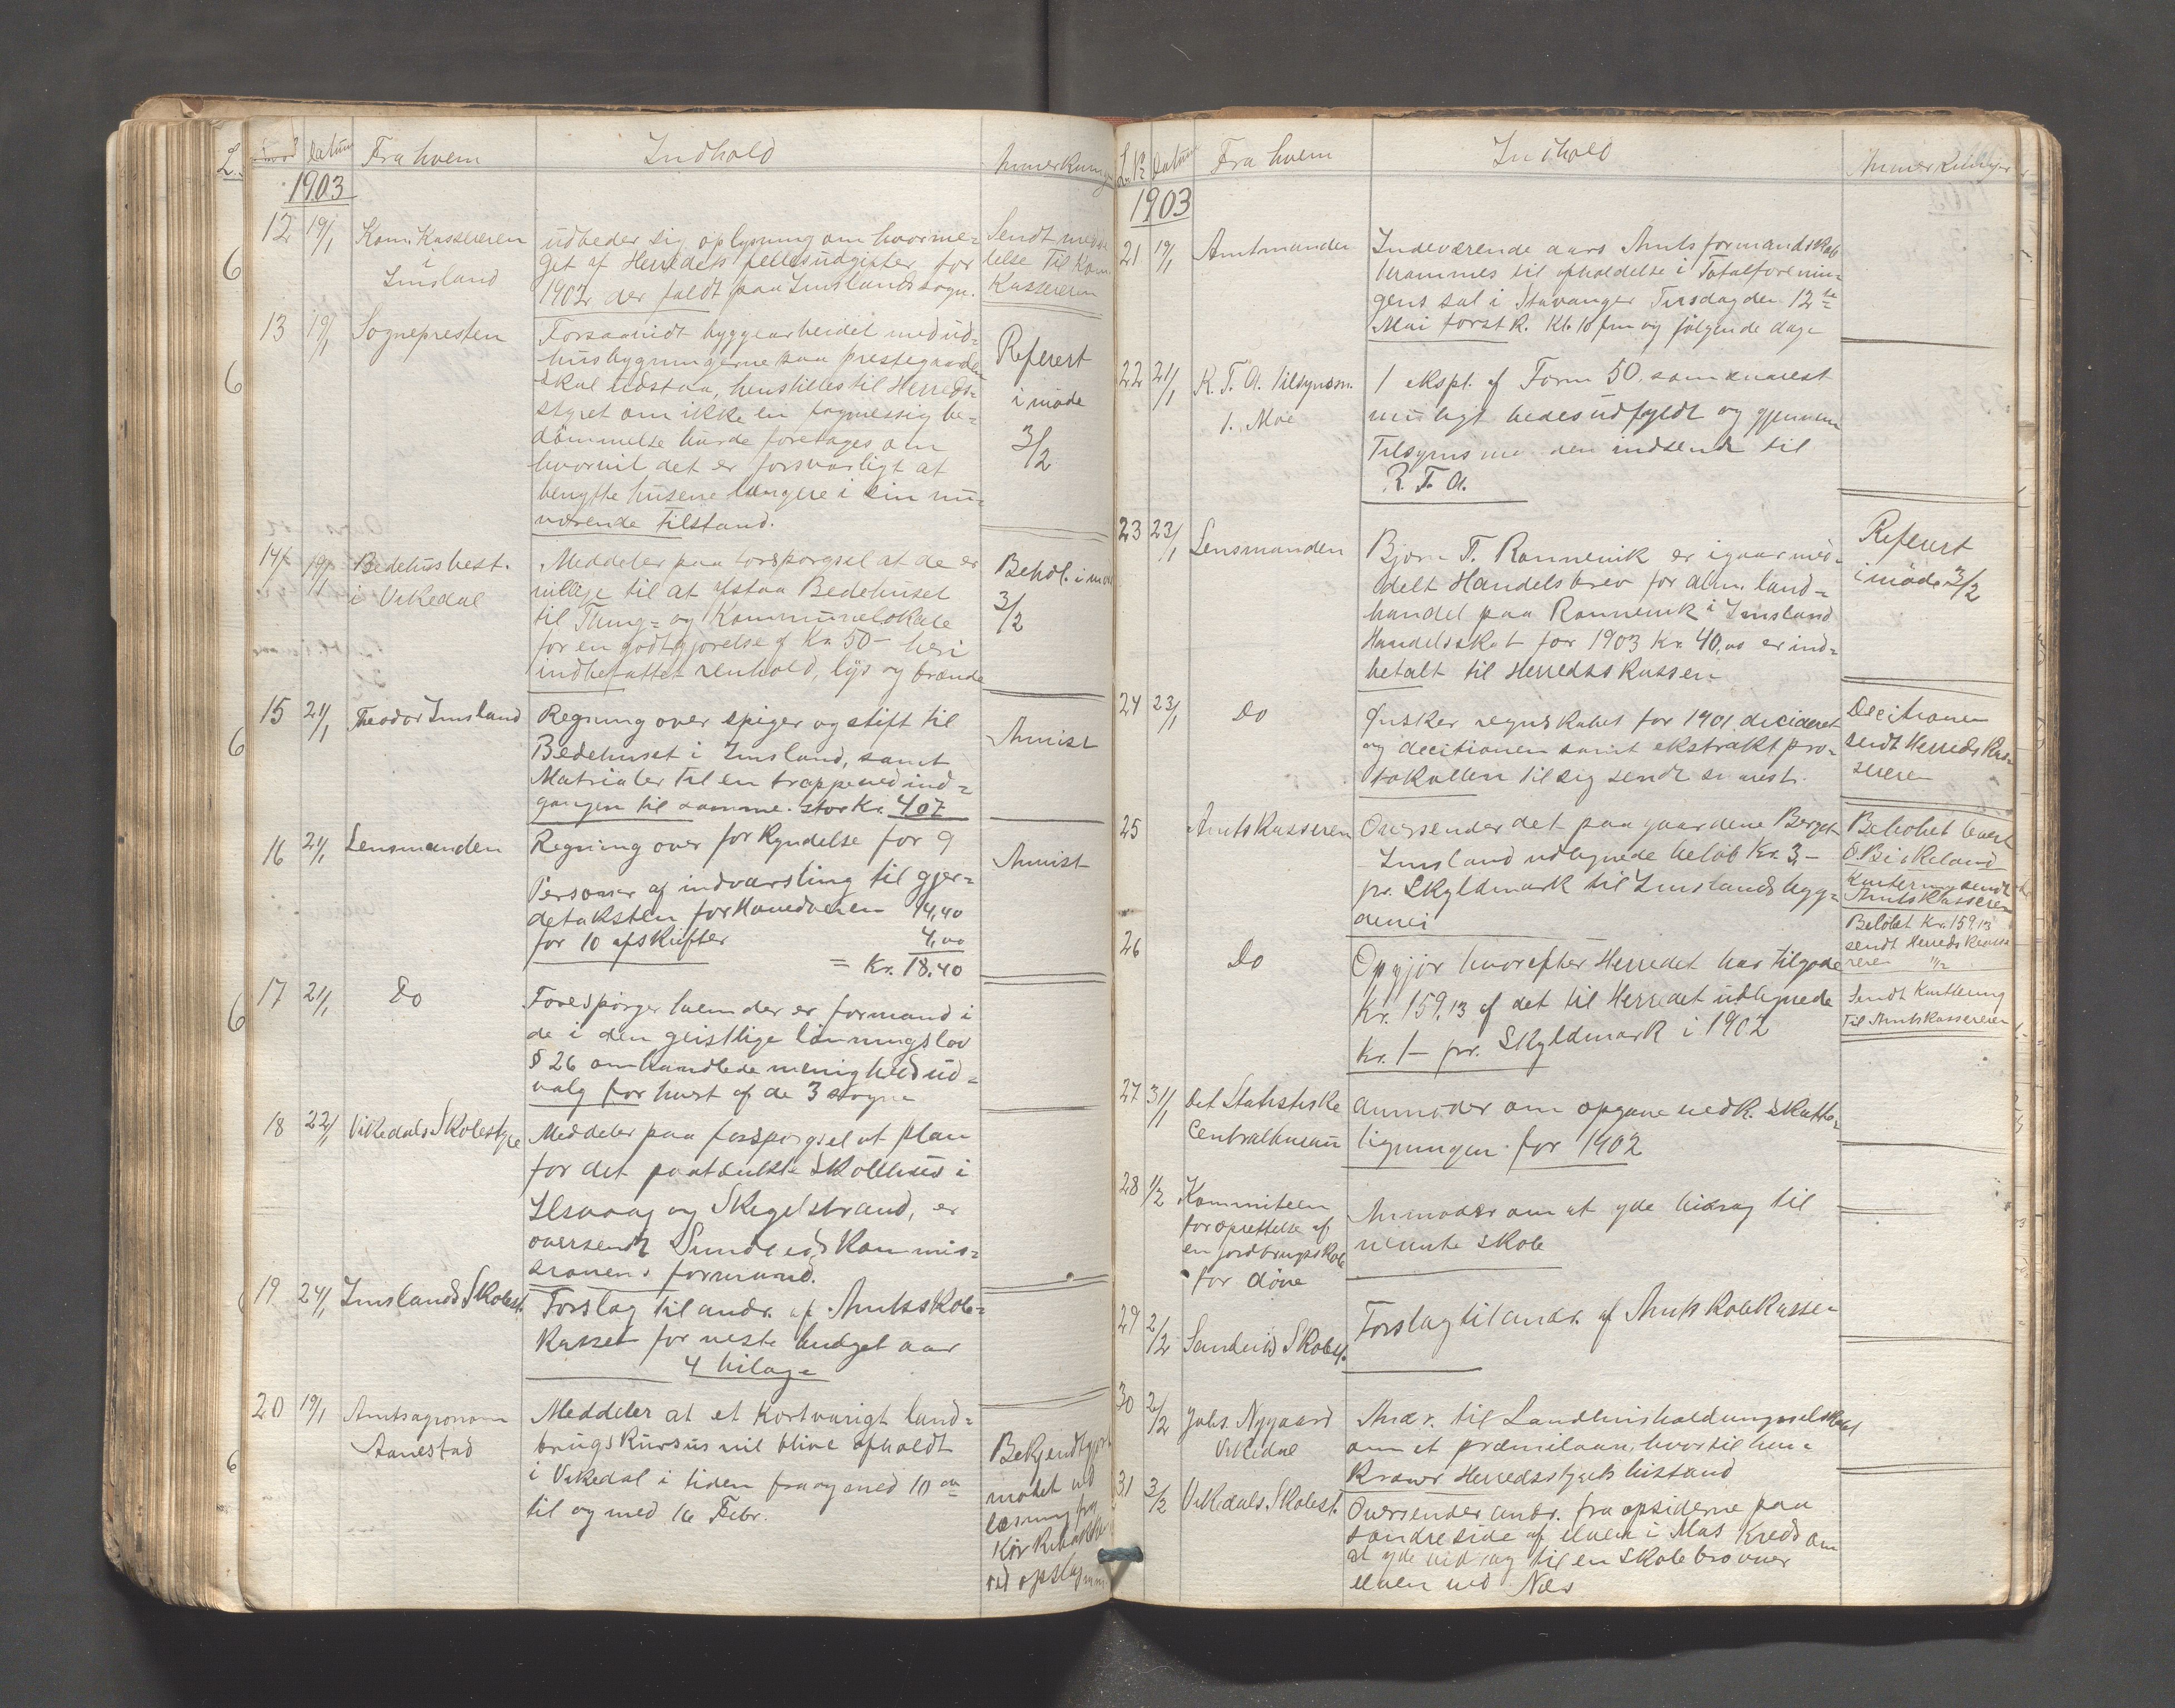 Datum Fra hvem Indhold Anmerkninger
1903
12 19/1 Kom. Kassereren
Imsland
udbeder sig oplysning om hvorme=
get af Herredets fellesudgifter for
1902 der faldt paa Imslands sogn.
Sendt medde
lelse til Kom.
Kassereren
13 19/1 Sognepresten
Forsaavidt byggearbeidet med ud=
husbygningerne paa prestegaarden
skal udstaa, henstilles til Herreds=
styret om ikke en fagmessig be=
dømmelse burde foretages om
hvorvit det er forsvarligt at
benytte husene længere i sin nu=
værende tilstand.
Referert
i møde
3/2
14 19/1 Bedehusbest.
i Vikedal
Meddeler paa forspørgsel at de er
villige til at afstaa Bedehuset
til Thing= og Kommunelokale
for en godtgjørelse af Kr. 50- heri
indbefattet renhold, lys og brænde
Behdl. i mø
3/2
15 21/1 Theodor Imsland
Regning over spiger og stift til
Bedehuset i Imsland, samt
Matrialer til en trappe ved ind=
gangen til samme. stor Kr. 4,07
Anvist
16 21/1 Lensmanden
Regning over forkyndelse for 9
Personer af indvarsling til gjer=
detaksten for Hovedveien 14,40
for 10 afskrifter 4,00
= Kr. 18.40
Anvist
17 21/1 Do
Forespørger hvem der er formand i
de i den geistlige lønningslov
§ 26 omhandlede menighedsud=
valg for hvert af de 3 sogne
18 22/1 Vikedals Skolestyre
Meddeler paa forspørgsel at plan
for det paatænkte Skolehus i
Ilsvaag og Skegelstrand, er
oversendt Sundhedskommis=
sionens formand.
19 24/1 Imslands Skolest.
Forslag til andr. af Amtsskole=
kassen for neste budget aar
4 bilage
20 19/1 Amtsagronom
Aanestad
Meddeler at et kortvarigt land=
brugskursus vil blive afholdt
i Vikedal i tiden fra og med 10de
til og med 16 Febr.
Bekjendtgjort
mødet ved
læsning fra
Kirkebakken
ved opslag
L.№ Datum Fra hvem Indhold Anmerkninger
1903
21 19/1 Amtmanden
Indeværende aars Amtsformandskab
berammes til afholdelse i Totalforenin=
gens sal i Stavanger Tirsdag den 12te
Mai førstk. Kl. 10 fm og følgende dage
22 21/1 R. T. A. tilsynsm.
1. Moe
1 ekspl. af Form 50. som snarest
muligt bedes udfyldt og gjennem
Tilsynsmanden indsendt til
R. T. A.
23 23/1 Lensmanden
Bjørn T. Rønnevik er igaar med=
delt Handelsbrev for alm. land=
handel paa Rønnevik i Imsland
Handelsskat for 1903 Kr. 40,00 er ind=
betalt til Herredskassen
Referert
i møde 3/2
24 23/1 Do
Ønsker regnskabet for 1901 decideret
og decitionen samt ekstraktpro=
tokollen til sig sendt snarest.
Decitionen
sendt Herredskas=
sereren
25 Amtskasseren
Oversender det paa gaardene Berget
Imsland udlignede beløb Kr. 3,-
pr. Skyldmark til Imslands bygg=
devei
Beløbet levert
O. Birkeland
Kvittering sendt
Amtskasseren
26 Do
Opgjør hvorefter Herredet har tilgode
Kr. 159,13 af det til Herredet udlignede
Kr. 1- pr. Skyldmark i 1902
Beløbet Kr. 159,13
sendt Herredskasse
reren
Sendt Kvittering
til Amtskassereren
27 31/1 Det Statistiske
Centralbureau
Anmoder om opgave vedk. skatte=
ligningen for 1902
28 1/2 Kommiteen
for oprettelse af
en jordbrugsskole
for døve
Anmoder om at yde bidrag til
nevnte skole
29 2/2 Sandeids Skolest.
Forslag til andr. af Amtskolekassen
30 2/2 Johs. Nygaard
Vikedal
Andr. til Landhusholdningsselskabet
om et præmielaan, hvortil han
kræver Herredsstyrets bistand
31 3/2 Vikedals Skolest.
Oversender andr. fra opsiderne paa
søndre side af elven i Mas Kreds om
at yde bidrag til en skolebro over
elven ved Nes